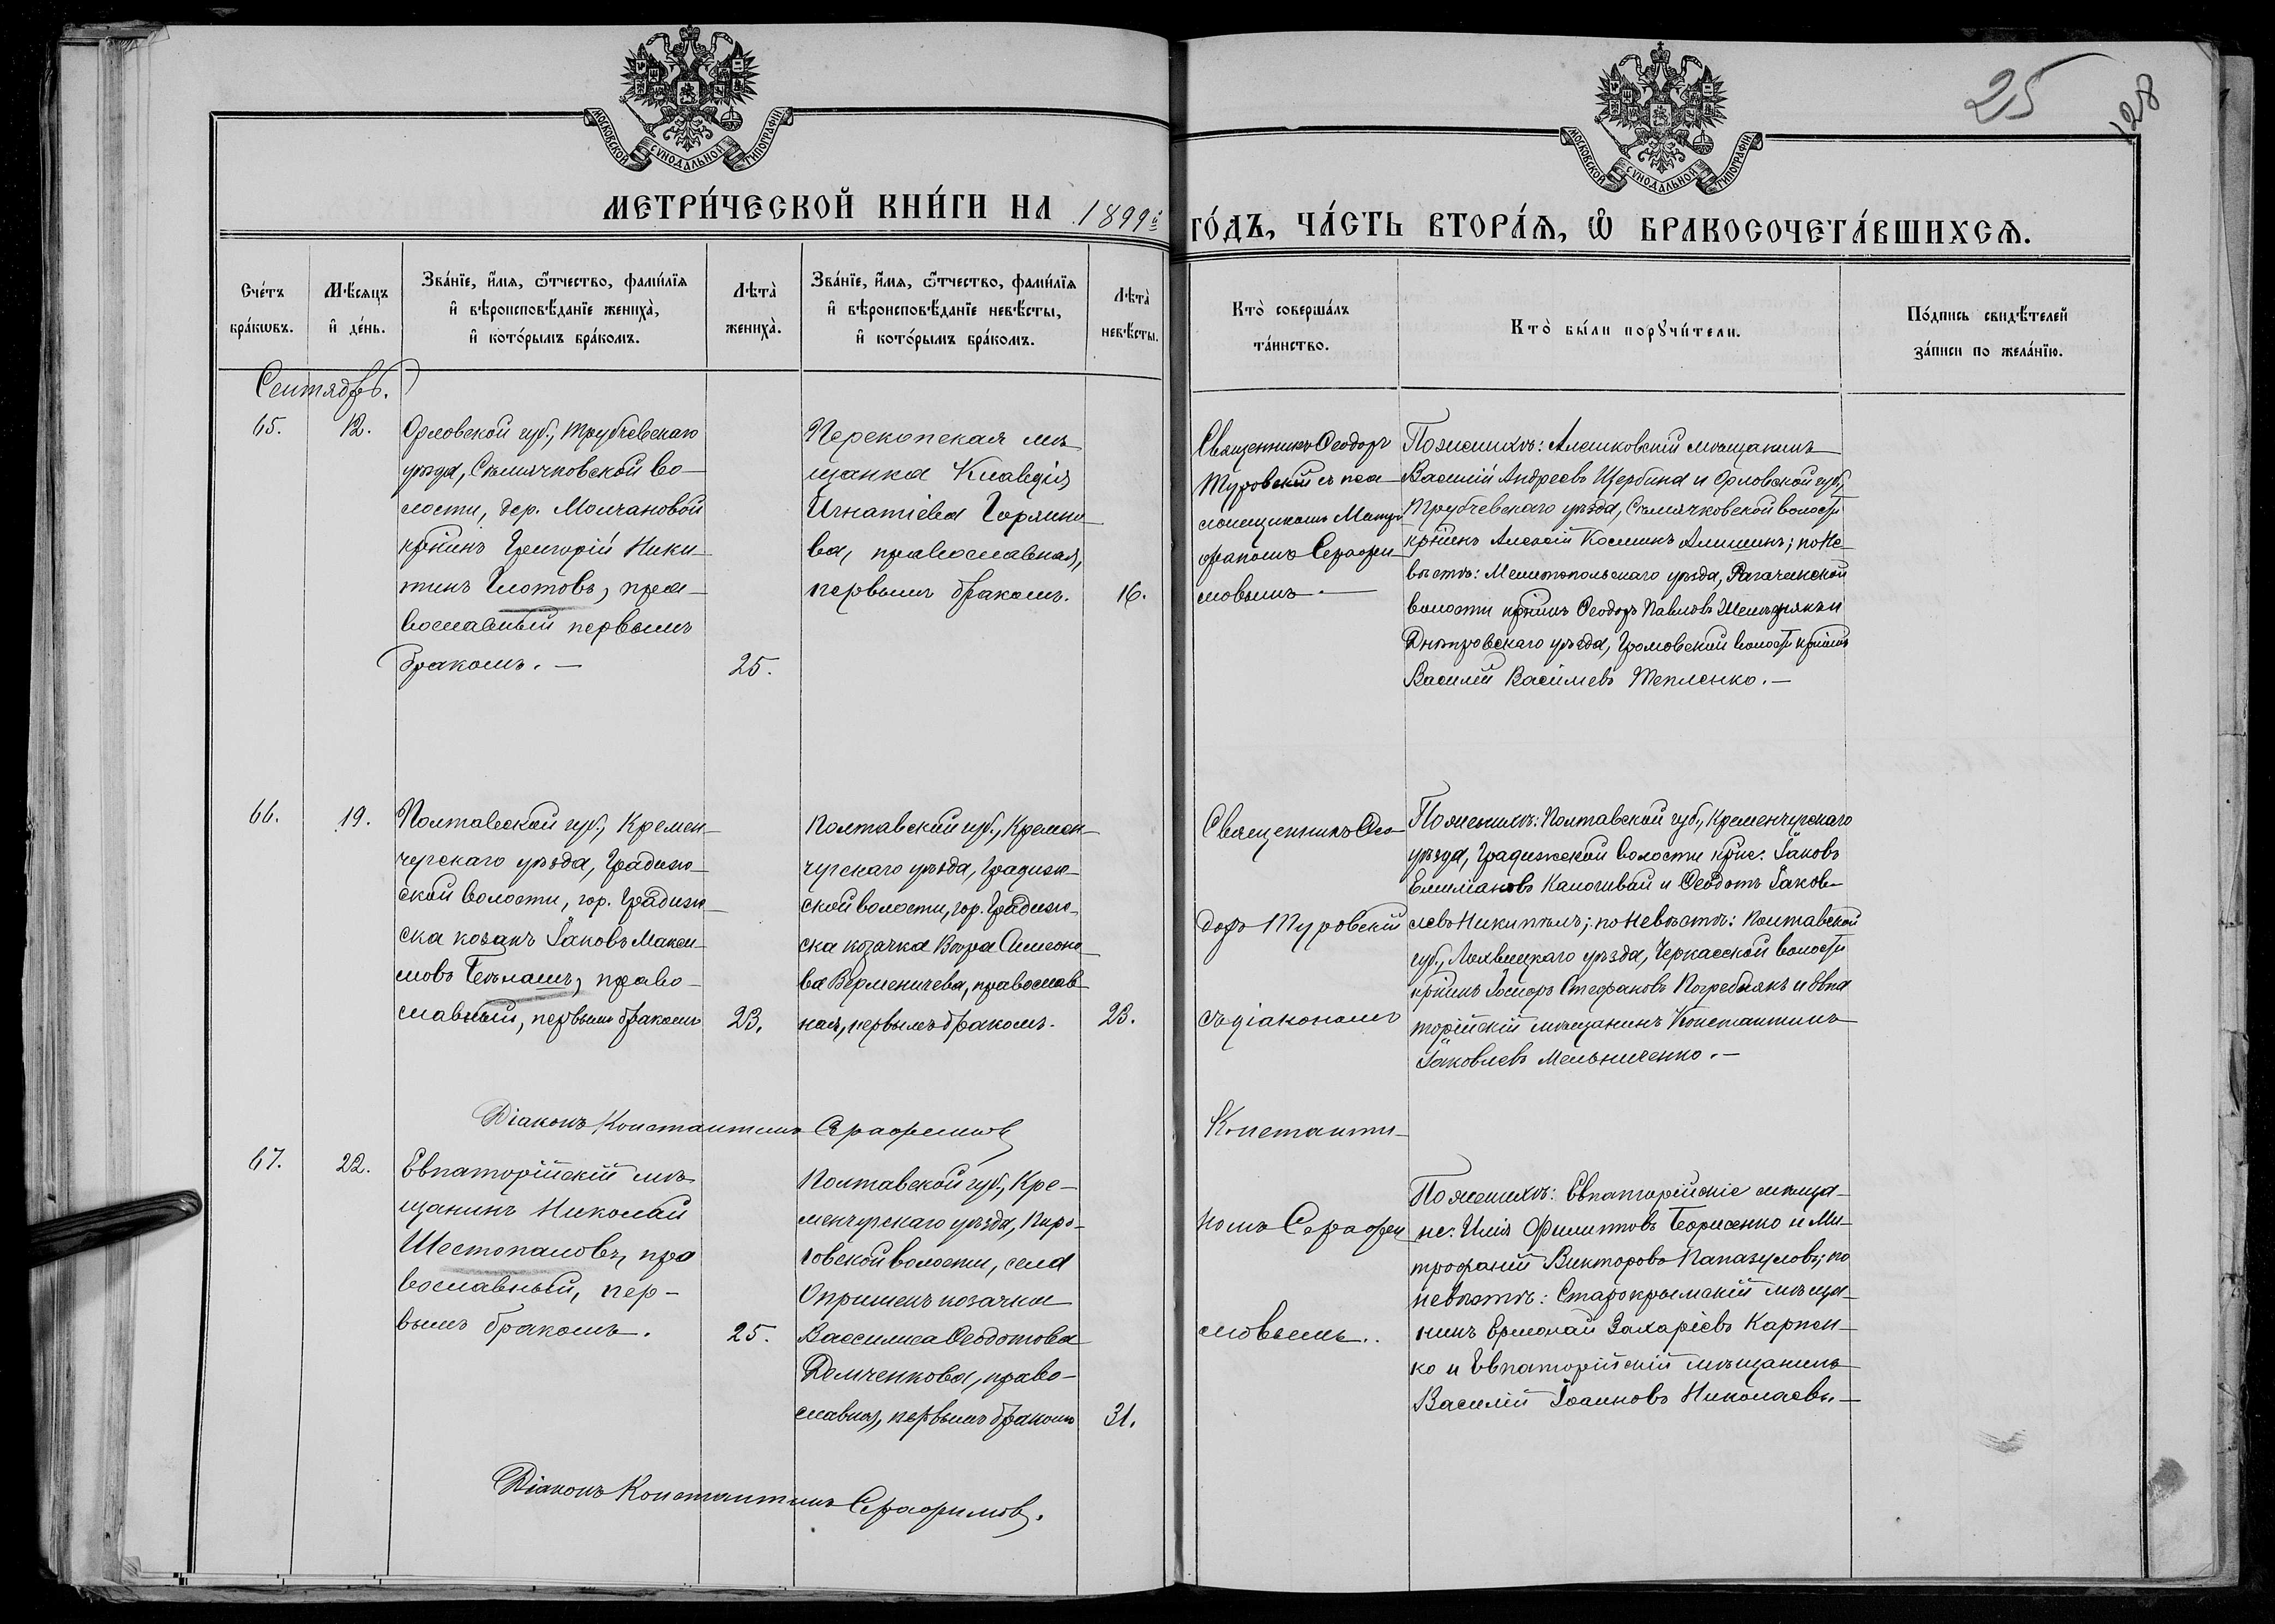 25
128
МОСКОВСКОЙ СѴНОДАЛЬНОЙ ТИПОГРАФІИ
МОСКОВСКОЙ СѴНОДАЛЬНОЙ ТИПОГРАФІИ
МЕТРИ́ЧЕСКОЙ КНИ́ГИ НА 1899й
ГО́ДЪ, ЧА́СТЬ ВТОРА́Ѧ, Ѡ БРАКОСОЧЕТА́ВШИХСѦ.
Сче́тъ
бра́кѡвъ.
Мѣ́сяцъ
и҆ де́нь.
Зва́нїе, и҆́мѧ, ѻ҆́тчество, фами́лїѧ
и҆ вѣроисповѣ́данїе жениха̀,
и҆ кото́рымъ бра́комъ.
Лѣта̀
жениха̀.
Зва́нїе, и҆́мѧ, ѻ҆́тчество, фами́лїѧ
и҆ вѣроисповѣ́данїе невѣ́сты,
и҆ кото́рымъ бра́комъ.
Лѣта̀
невѣ́сты.
Кто̀ соверша́лъ
та́инство.
Кто̀ бы́ли порꙋчи́тели.
По́дпись свидѣ́телей
за́писи по жела́нїю.
Сентябрь.
65.
12.
Орловской губ., Трубчевскаго
уѣзда, Сѣмячковской во-
лости, дер. Молчановой
крѣинъ Григорій Ники-
тинъ Глотовъ, пра-
вославный первымъ
бракомъ. —
25.
Перекопская мѣ
щанка Клавдія
Игнатіева Горяино-
ва, православная,
первымъ бракомъ.
16.
Священникъ Ѳеодоръ
Туровскій съ пса-
ломщикомъ Митро
фаномъ Серафи-
мовымъ. —
По женихѣ: Алешковскій мѣщанинъ
Василій Андреевъ Щербина и Орловской губ.,
Трубчевскаго уѣзда, Сѣмячковской волости
крѣинъ Алексій Косминъ Алишинъ; по не-
вѣстѣ: Мелитопольскаго уѣзда, Рагачинской
волости крѣинъ Ѳеодоръ Павловъ и
Днѣпровскаго уѣзда, Громовской волости крѣинъ
Василій Васильевъ Тепленко. —
66.
19.
Полтавской губ., Кремен-
чугскаго уѣзда, Градиж-
ской волости, гор. Градиж-
ска козакъ Іаковъ Макси-
мовъ Бѣлашъ, право-
славный, первымъ бракомъ
23.
Полтавской губ., Кремен-
чугскаго уѣзда, Градиж-
ской волости, гор. Градиж-
ска козачка Вѣра Симеоно-
ва Верменичева, православ-
ная, первымъ бракомъ.
23.
Священникъ Ѳео-
доръ Туровскій
съ діакономъ
Константи-
номъ Серафи
мовымъ..
По женихѣ: Полтавской губ., Кременчугскаго
уѣзда, Градижской волости крѣс. Іаковъ
Емиліановъ и Ѳеодотъ Іаков-
левъ по невѣстѣ: Полтавской
губ., Лохвицкаго уѣзда, Черкасской волости
крѣинъ Стефановъ Погребнякъ и Евпа
торійскій мѣщанинъ Константинъ
Іаковлевъ Мельниченко. —
Діаконъ Константинъ Серафимовъ
67.
22.
Евпаторійскій мѣ
щанинъ Николай
Шестопаловъ, пра
вославный, пер-
вымъ бракомъ.
25.
Полтавской губ., Кре-
менчугскаго уѣзда, Пиро-
говской волости, села
Опришекъ козачка
Василиса Ѳеодотова
Демченкова, право-
славная, первымъ бракомъ
31.
По женихѣ: Евпаторійскіе мѣща-
не: Илія Филипповъ Борисенко и Ми-
трофаній Викторовъ Папазуловъ; по
невѣстѣ: Старокрымскій мѣща-
нинъ Ермолай Захаріевъ Карпен-
ко и Евпаторійскій мѣщанинъ
Василій Іоанновъ Николаевъ. —
Діаконъ Константинъ Серафимовъ.